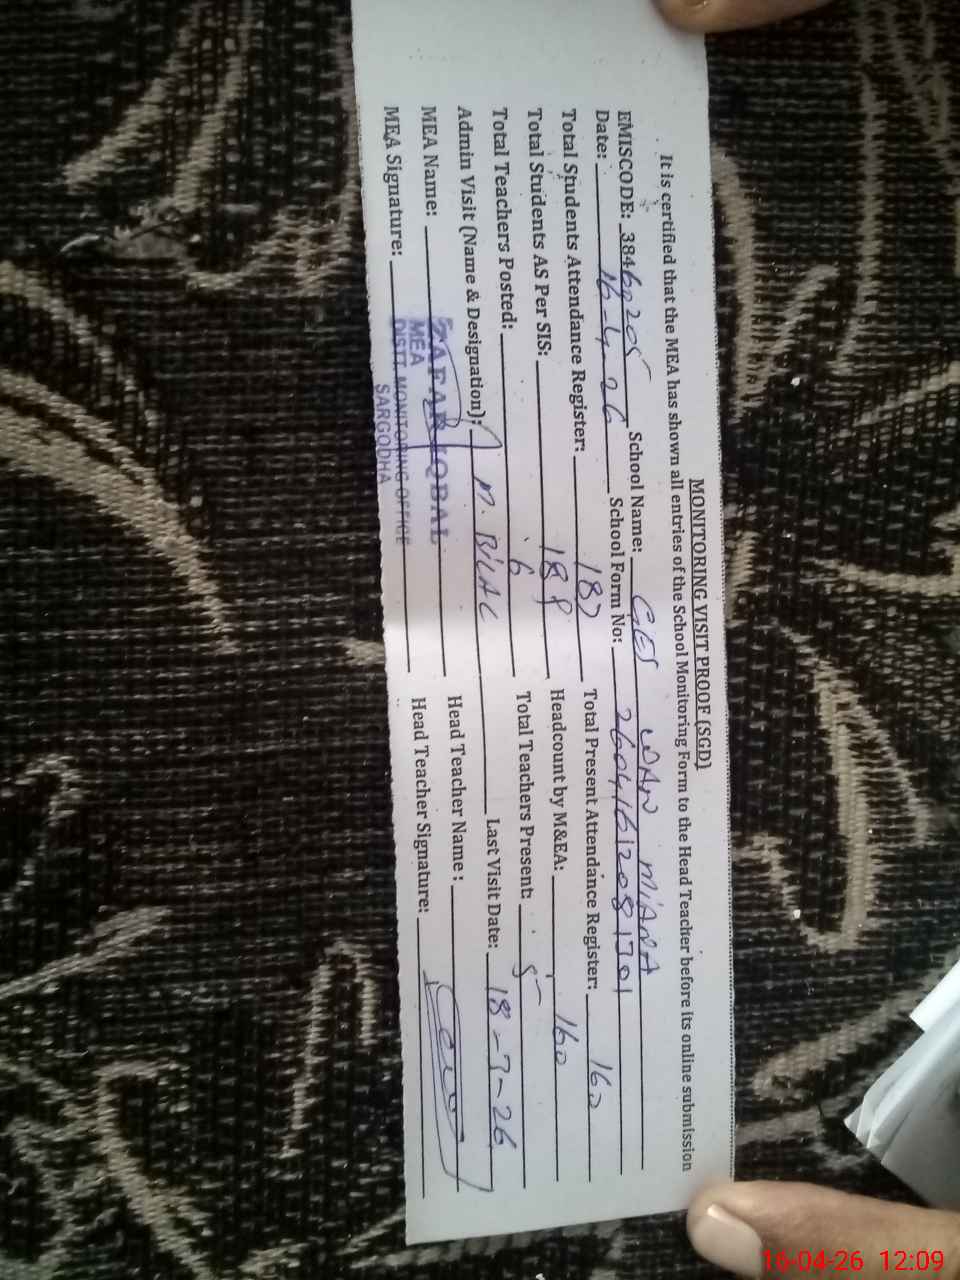 MONITORING VISIT PROOF (SGD)
It is certified that the MEA has shown all entries of the School Monitoring Form to the Head Teacher before its online submission
EMISCODE: 38460205 School Name: GES WAN MIANA
Date: 16-4-26 School Form No:
Total Students Attendance Register: Total Present Attendance Register: 160
Total Students AS Per SIS: 188 Headcount by M&EA: 160
Total Teachers Posted: 6 Total Teachers Present: 5
Admin Visit (Name & Designation): M. BILAL Last Visit Date: 18-3-26
MEA Name: ZAFAR IQBAL Head Teacher Name:
MEA
MEA Signature: Head Teacher Signature:
DISTT. MONITORING OFFICE
SARGODHA
16-04-26 12:09